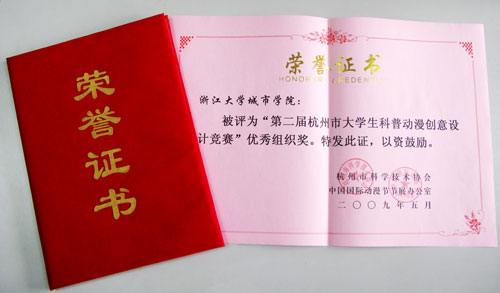 荣誉证书
荣誉证书
HONORARY CREDENTIAL
浙江大学城市学院：
被评为“第二届杭州市大学生科普动漫创意设
计竞赛”优秀组织奖。特发此证，以资鼓励。
杭州市科学技术协会
中国国际动漫节节展办公室
二〇〇九年五月